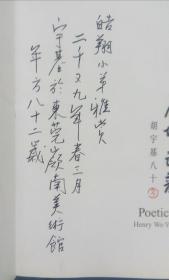 皓翔小弟雅賞
二千又九年春三月
宇基於東莞嶺南美術館
年方八十二歲
胡宇基八十
Poetic
Henry Wo Y